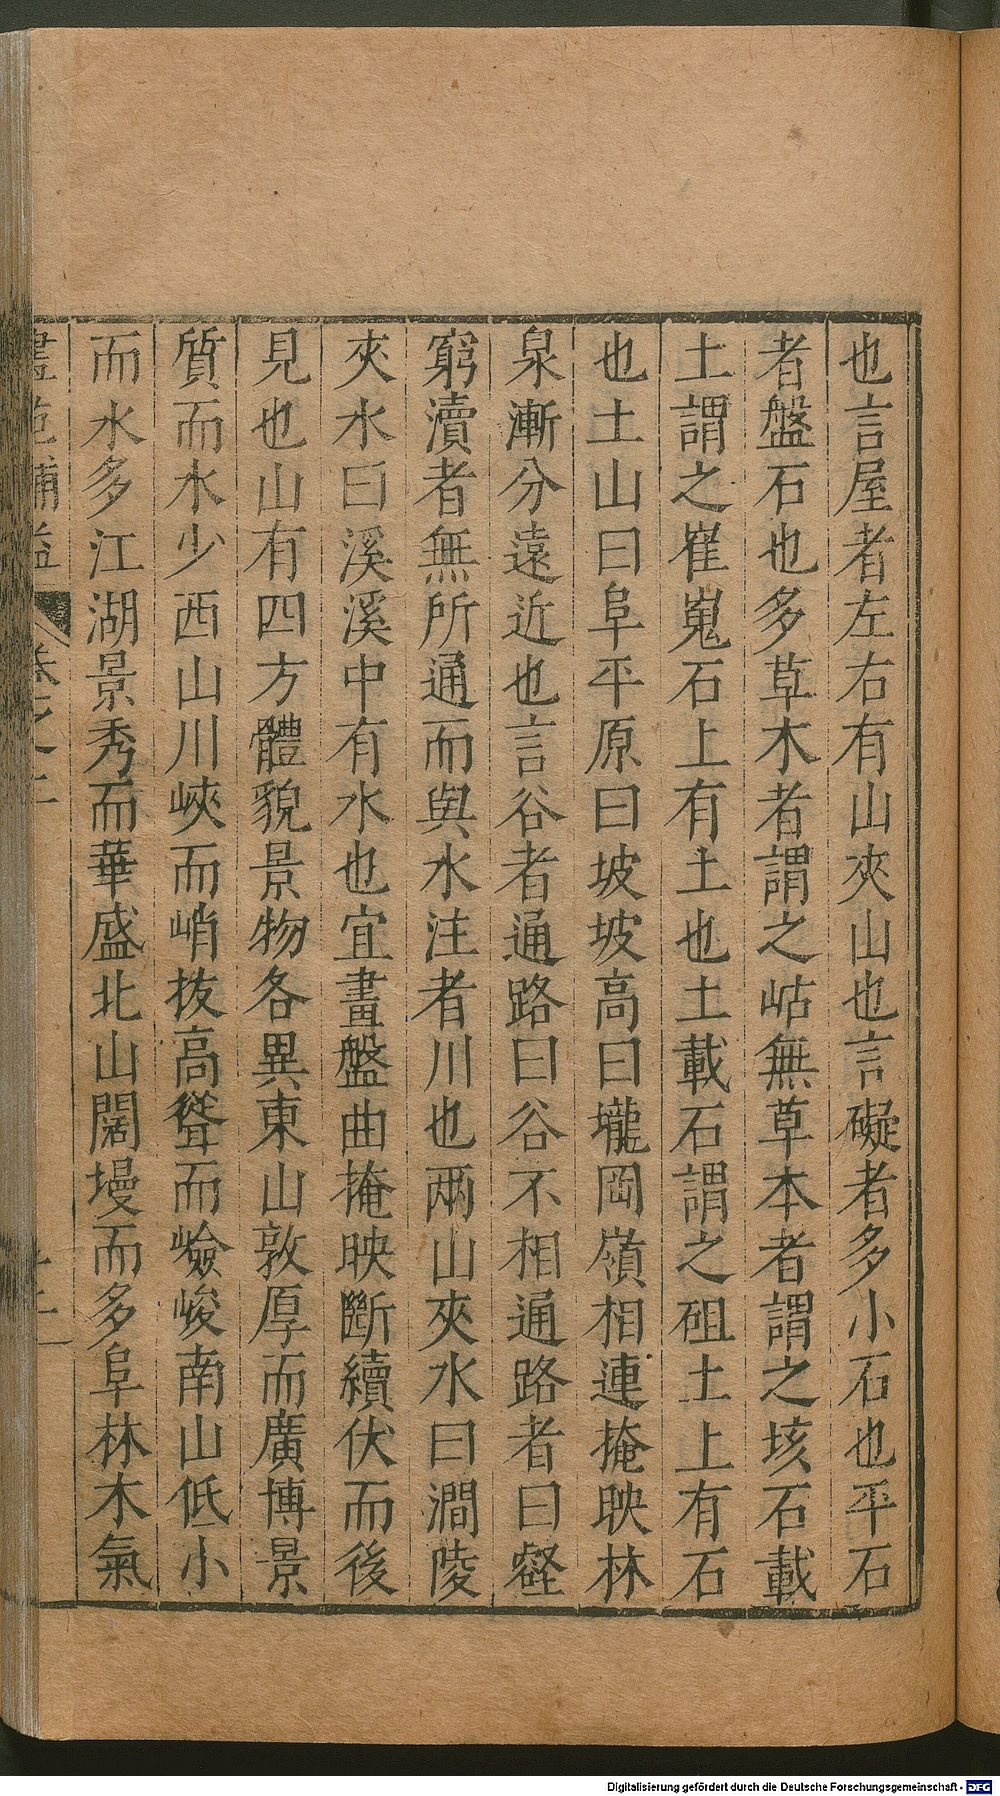 也言屋者左右有山夾山也言礙者多小石也平石
者盤石也多草木者謂之岵無草本者謂之垓石載
土謂之崔嵬石上有土也土載石謂之砠土上有石
也土山曰阜平原曰坡坡高曰壠岡嶺相連掩映林
泉漸分遠近也言谷者通路曰谷不相通路者曰壑
窮瀆者無所通而與水注者川也兩山夾水曰澗陵
夾水曰溪溪中有水也宜畫盤曲掩映斷續伏而後
見也山有四方體貌景物各異東山敦厚而廣博景
質而水少西山川峽而峭拔高聳而嶮峻南山低小
而水多江湖景秀而華盛北山闊墁而多阜林木氣
畫苑補益 卷之一
Digitalisierung gefördert durch die Deutsche Forschungsgemeinschaft - DFG